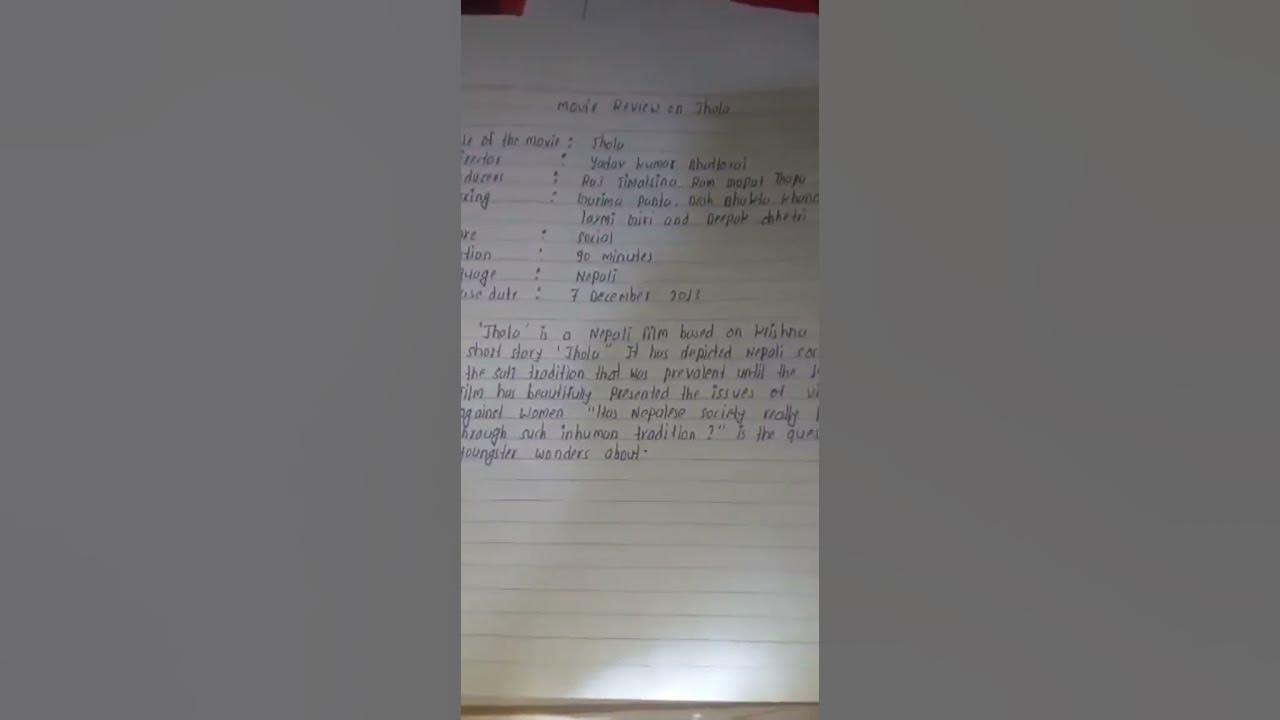 Movie Review on Jhola
le of the movie : Jhola
irector : Yadav kumar Bhattarai
ducers : Raj Timalsina, Ram Gopal Thapa
ring : Garima Panta, Desh Bhakta Khana
laxmi Giri and Deepak chhetri
re : social
tion : 90 minutes
guage : Nepali
ase date : 7 December 2013
'Jhola' is a Nepali film based on Krishna
short story 'Jhola" It has depicted Nepali soc
the sati tradition that was prevalent until the 1
film has beautifully presented the issues of vi
gainst women "Has Nepalese society really
hrough such inhuman tradition ?" is the ques
oungster wonders about.